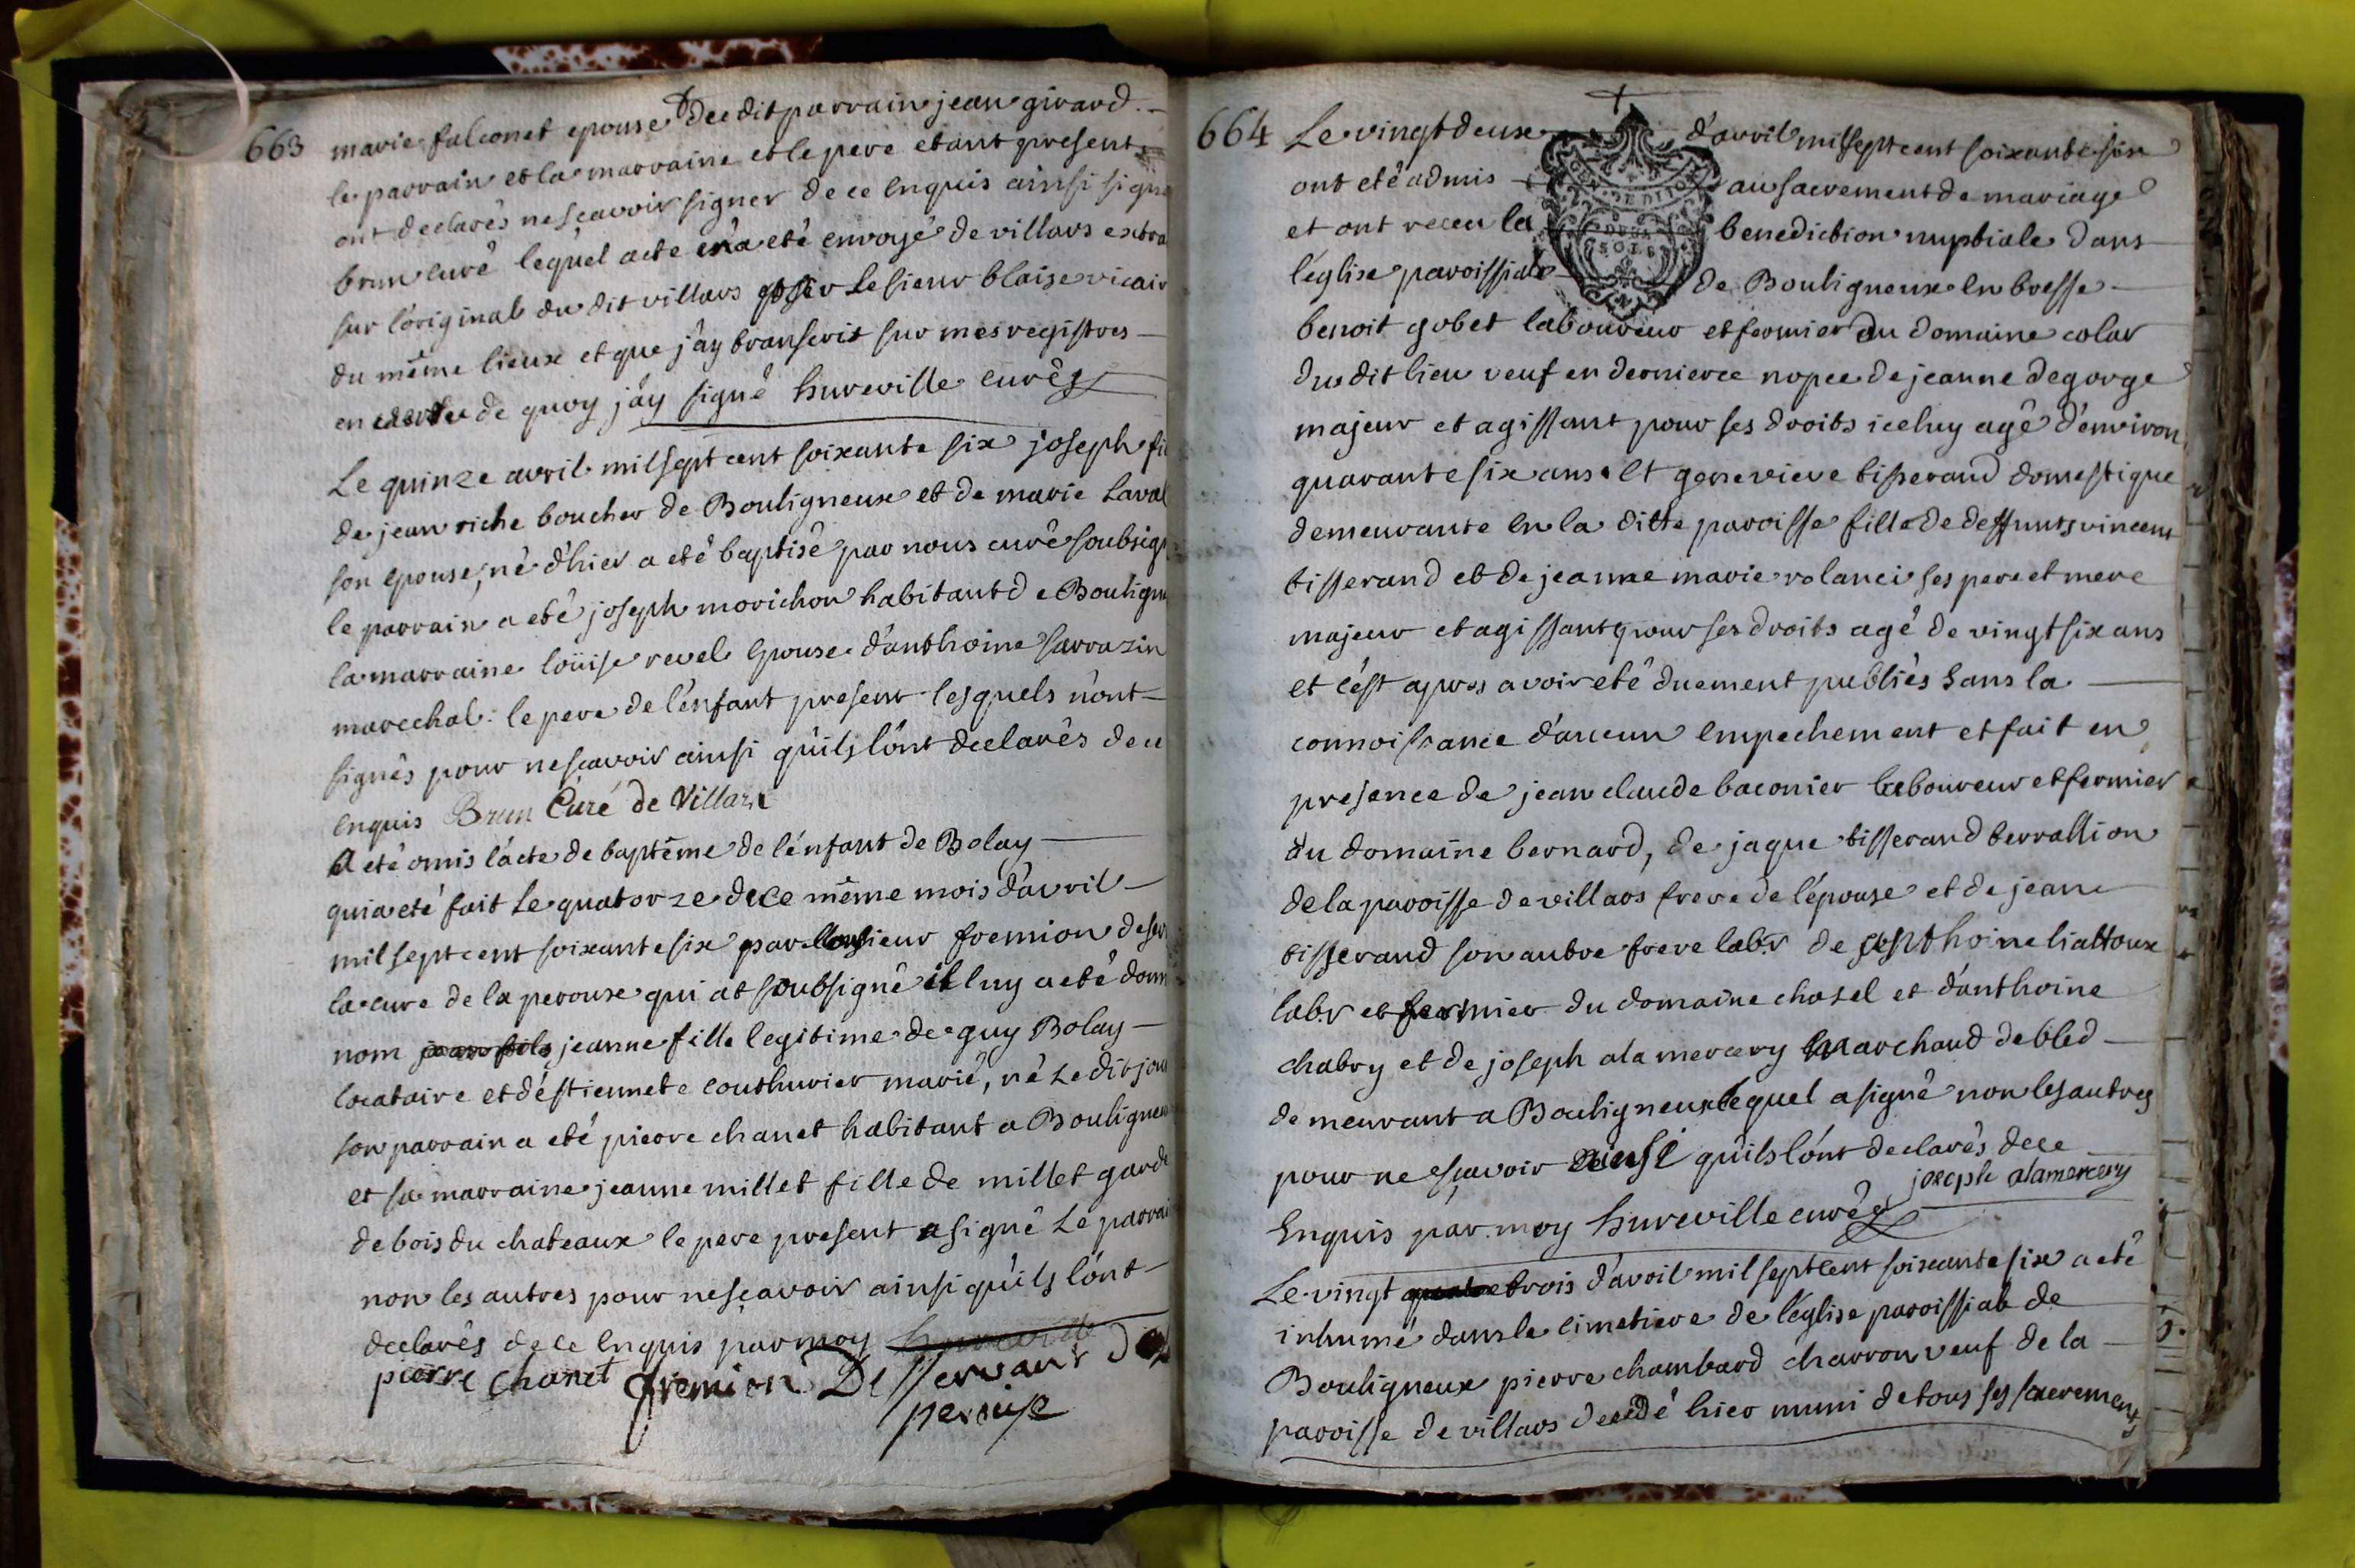 663
marie falconet epouse du dit parrain jean girard.
le parrain et la marraine et le pere etant present
ont declarés ne scavoir signer de ce Enquis ainsi signé
brun curé lequel acte m'a eté envoyé de villars extra
sur l'original du dit villars par Le sieur blaise vicair
du même lieux et que j'ay transcrit sur mes registres
en de quoy j'ay signé hureville curé
Le quinze avril mil sept cent soixante six joseph fi
de jean riche boucher de Bouligneux et de marie Laval
son epouse, né d'hier a eté baptisé par nous curé soubsig
le parrain a eté joseph morichon habitant de Bouligne
la marraine loüise revel Epouse d'anthoine sarrazin
marechal: le pere de l'enfant present lesquels n'ont
signés pour ne scavoir ainsi qu'ils l'ont declarés de ce
enquis Brun Curé de Villars
A eté omis l'acte de baptême de l'enfant de Bolay
qui a eté fait Le quatorze de ce même mois d'avril
mil sept cent soixante six par sieur fremion deser
la cure de la perouse qui at soubsigné il luy a eté donn
nom jeanne fille legitime de guy Bolay
locataire et d'éstiennete couthurier marié, né Le dit jour
son parrain a eté pierre chanet habitant a Bouligneu
et sa marraine jeanne millet fille de millet garde
de bois du chateaux le pere present a signé Le parrai
non les autres pour ne scavoir ainsi qu'ils l'ont
declarés de ce Enquis par moy hureville
pierre chanet fremion Desservant
perouse
664
Le vingt deuxe d'avril mil sept cent soixante six
ont eté admis au sacrement de mariage
et ont receu la benediction nuptiale dans
l'église paroissiale de Bouligneux En bresse
benoit gobet laboureur et fermier du domaine colar
du dit lieu veuf en derniere nopce de jeanne degorge
majeur et agissant pour ses droits iceluy agé d'environ
quarante six ans Et genevieve tisserand domestique
demeurante En la ditte paroisse fille de deffunts vincent
tisserand et de jeanne marie rolanci ses pere et mere
majeur et agissant pour ses droits agé de vingt six ans
et c'est apres avoir eté duement publiés sans la
connoissance d'aucun Empechement et fait en
presence de jean claude baconier laboureur et fermier
du domaine bernard, de jaque tisserand terrallion
de la paroisse de villars frere de l'épouse et de jean
tisserand son autre frere labr de anthoine liattoux
labr et fermier du domaine chasel et d'anthoine
chabry et de joseph alamercery marchand de bled
demeurant a Bouligneux lequel a signé non les autres
pour ne scavoir ainsi qu'ils l'ont declarés de ce
Enquis par moy hureville curé joseph alamercery
Le vingt quatre trois d'avril mil sept cent soixante six a eté
inhumé dans le cimetiere de l'église paroissiale de
Bouligneux pierre chambard charron veuf de la
paroisse de villars decedé hier muni de tous ses sacrements